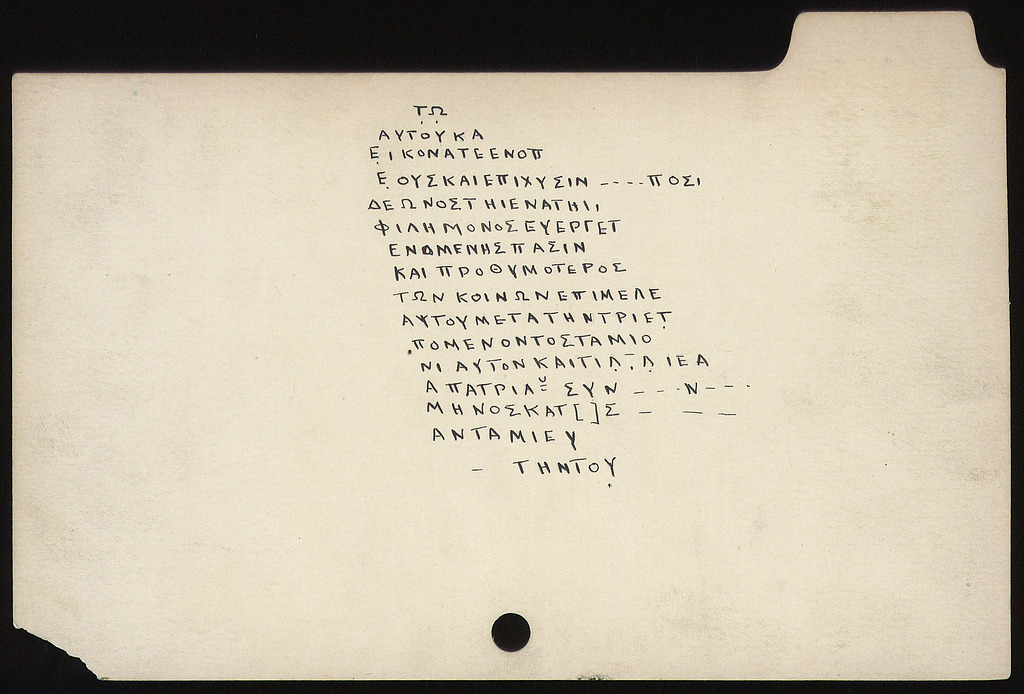 ΤΩ
ΑΥΤΟΥΚΑ
ΕΙΚΟΝΑΤΕΕΝΟΠ
ΕΟΥΣΚΑΙΕΠΙΧΥΣΙΝ ----ΠΟΣΙ
ΔΕΩΝΟΣΤΗΙΕΝΑΤΗΙΙ
ΦΙΛΗΜΟΝΟΣΕΥΕΡΓΕΤ
ΕΝΟΜΕΝΗΣΠΑΣΙΝ
ΚΑΙΠΡΟΘΥΜΟΤΕΡΟΣ
ΤΩΝΚΟΙΝΩΝΕΠΙΜΕΛΕ
ΑΥΤΟΥΜΕΤΑΤΗΝΤΡΙΕΤ
ΠΟΜΕΝΟΝΤΟΣΤΑΜΙΟ
ΝΙΑΥΤΟΝΚΑΙΤΙΛ-ΛΙΕΑ
ΑΠΑΤΡΙΑ ΣΥΝ - - - Ν - - -
ΜΗΝΟΣΚΑΤ[ ]Σ - - -
ΑΝΤΑΜΙΕΥ
- ΤΗΝΤΟΥ